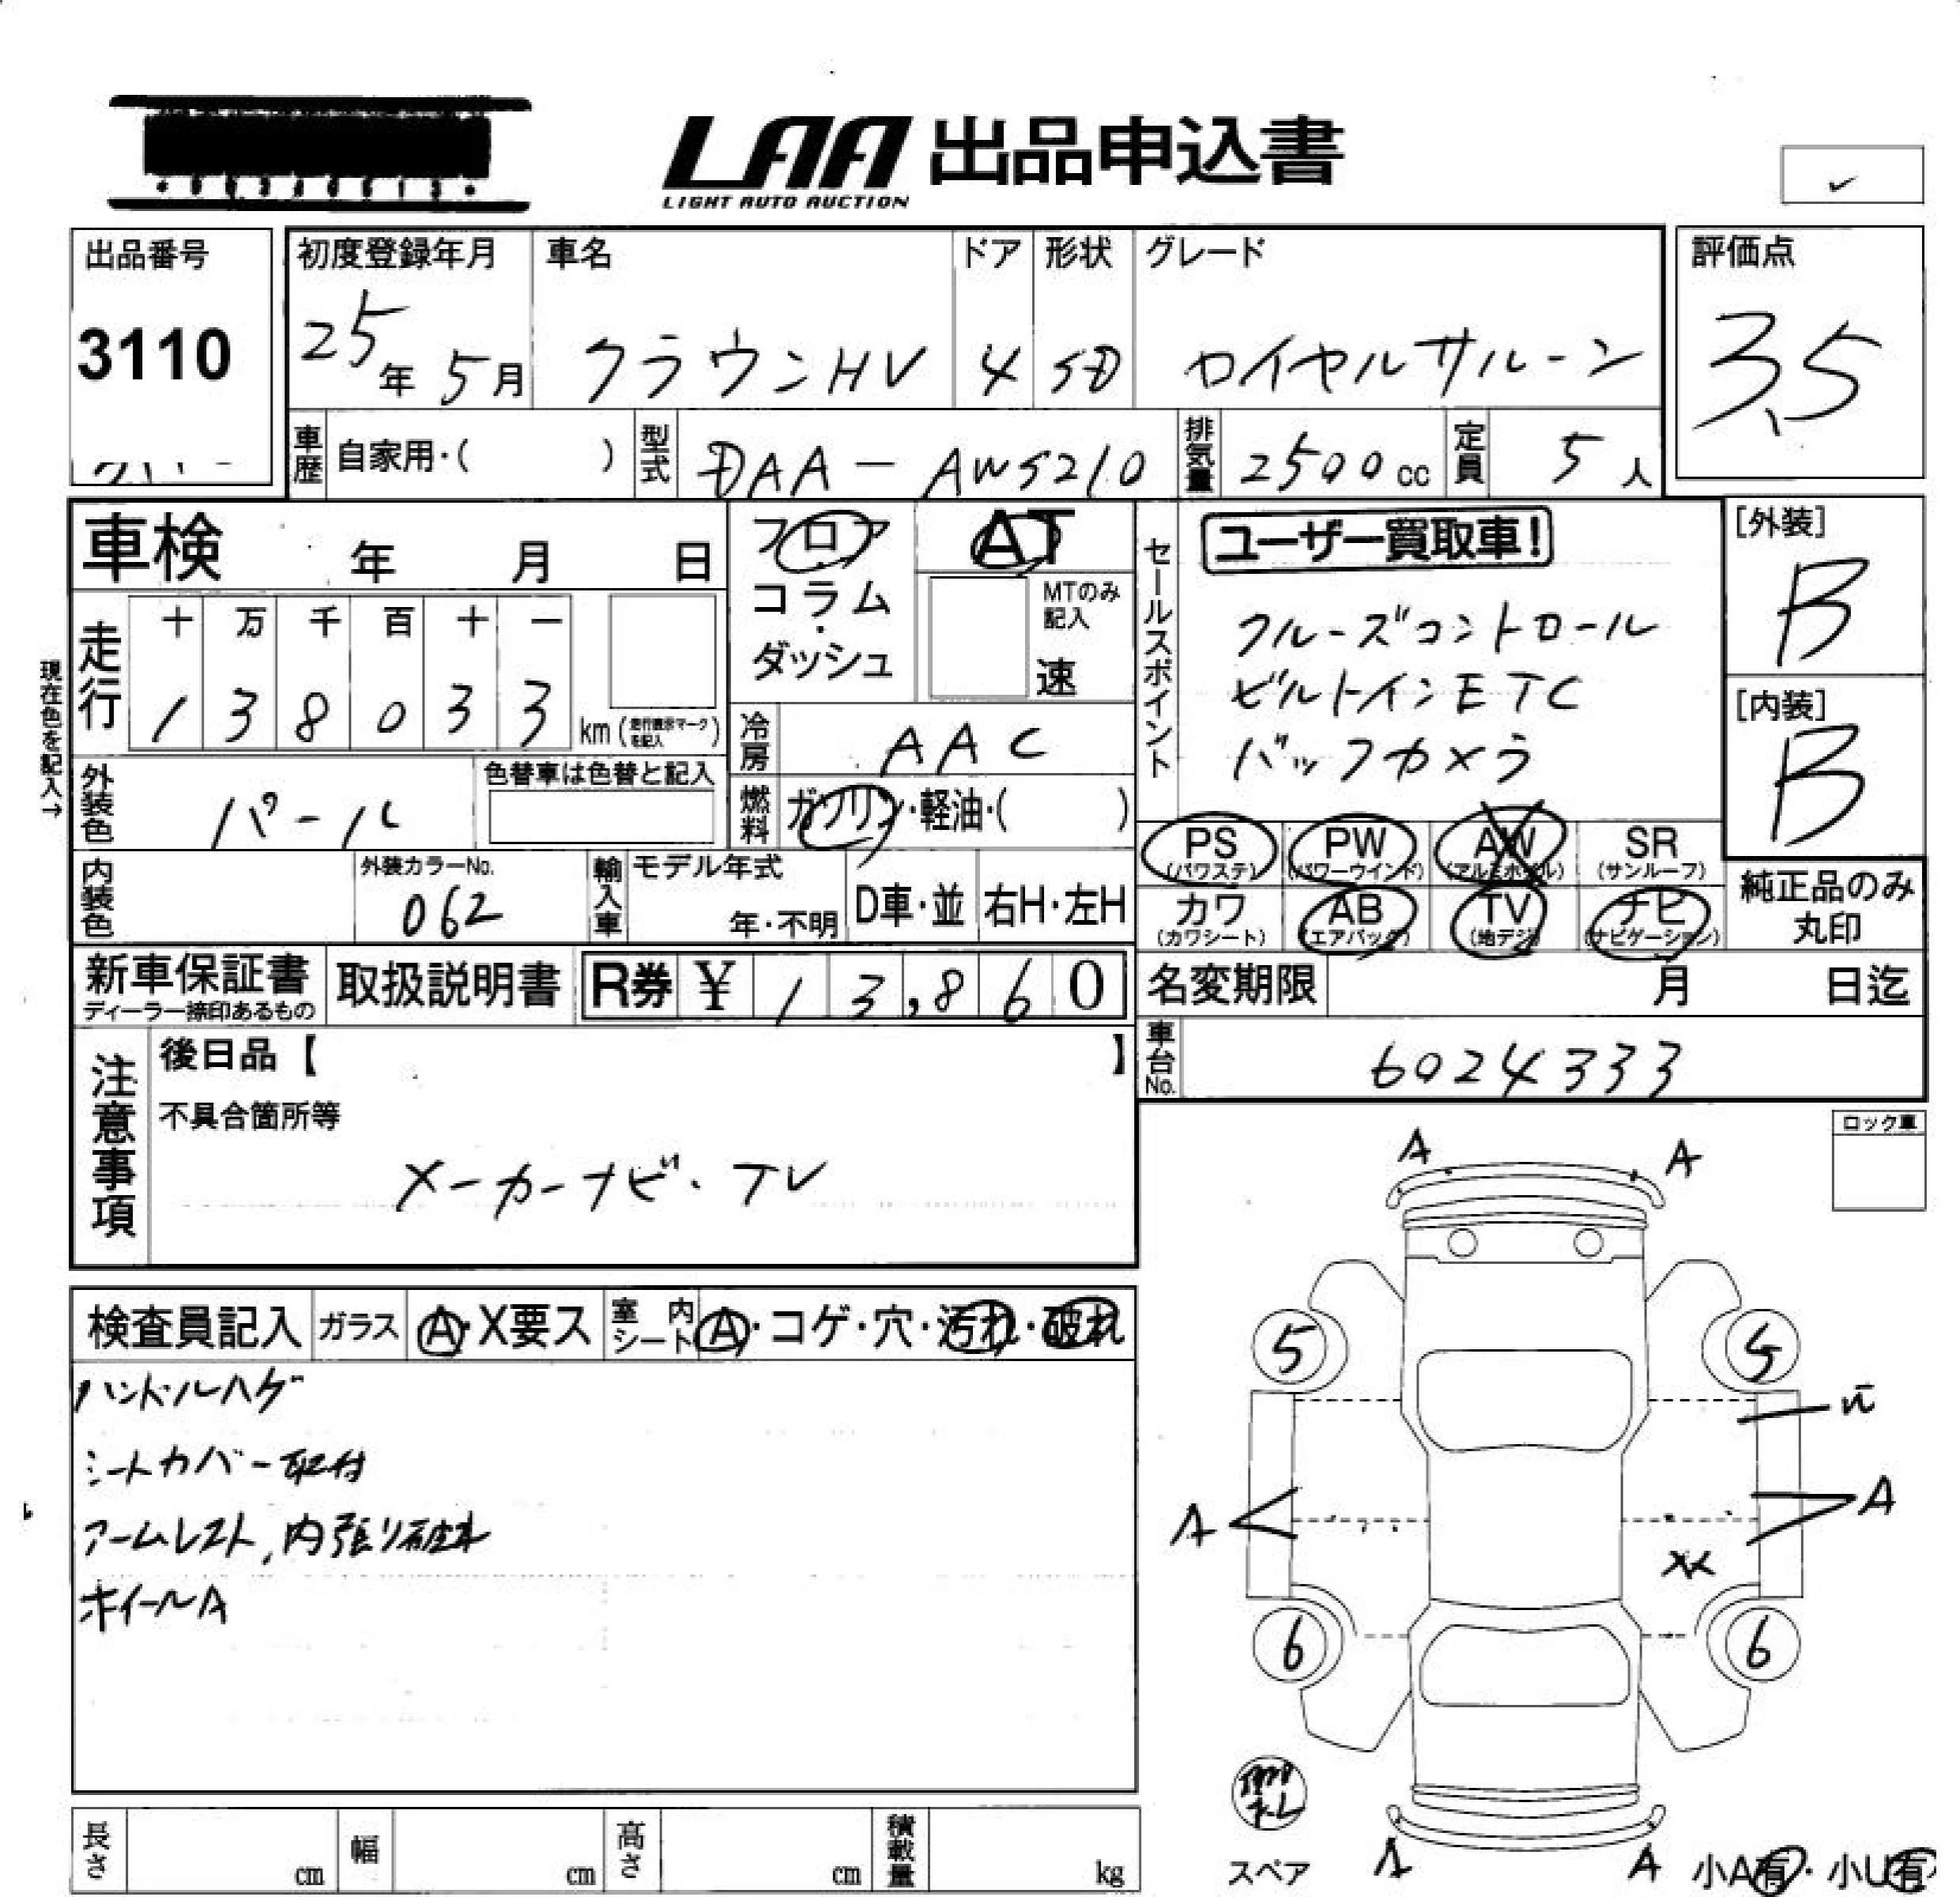 LAA 出品申込書
LIGHT AUTO AUCTION
出品番号
3110
初度登録年月
25年 5月
車名
クラウンHV
ドア
4
形状
SD
グレード
ロイヤルサルーン
評価点
3.5
車歴 自家用・( )
型式 DAA-AWS210
排気量 2500cc
定員 5人
車検 年 月 日
フロア
コラム・
ダッシュ
AT
MTのみ記入
速
セールスポイント
ユーザー買取車!
クルーズコントロール
ビルトインETC
バックカメラ
[外装]
B
[内装]
B
現在色を記入→
走行
十 万 千 百 十 一
1 3 8 0 3 3 km (走行表示マークを記入)
冷房 AAC
外装色 パール
色替車は色替と記入
燃料 ガソリン・軽油・( )
内装色
外装カラーNo.
062
輸入車
モデル年式
年・不明
D車・並
右H・左H
PS (パワステ)
PW (パワーウインド)
AW (アルミホイル)
SR (サンルーフ)
カワ (カワシート)
AB (エアバッグ)
TV (地デジ)
ナビ (ナビゲーション)
純正品のみ
丸印
新車保証書
ディーラー捺印あるもの
取扱説明書
R券 ¥ 13,860
名変期限 月 日迄
車台No. 6024333
注意事項
後日品【 】
不具合箇所等
メーカーナビ・TV
ロック車
検査員記入
ガラス A・X要ス
室内シート A・コゲ・穴・汚れ・破れ
ハンドルハゲ
シートカバー取付
アームレスト,内張り破れ
ホイールA
A A
5 5
A A
XX
6 6
スペア
A A
小A有・小U有
長さ cm
幅 cm
高さ cm
積載量 kg